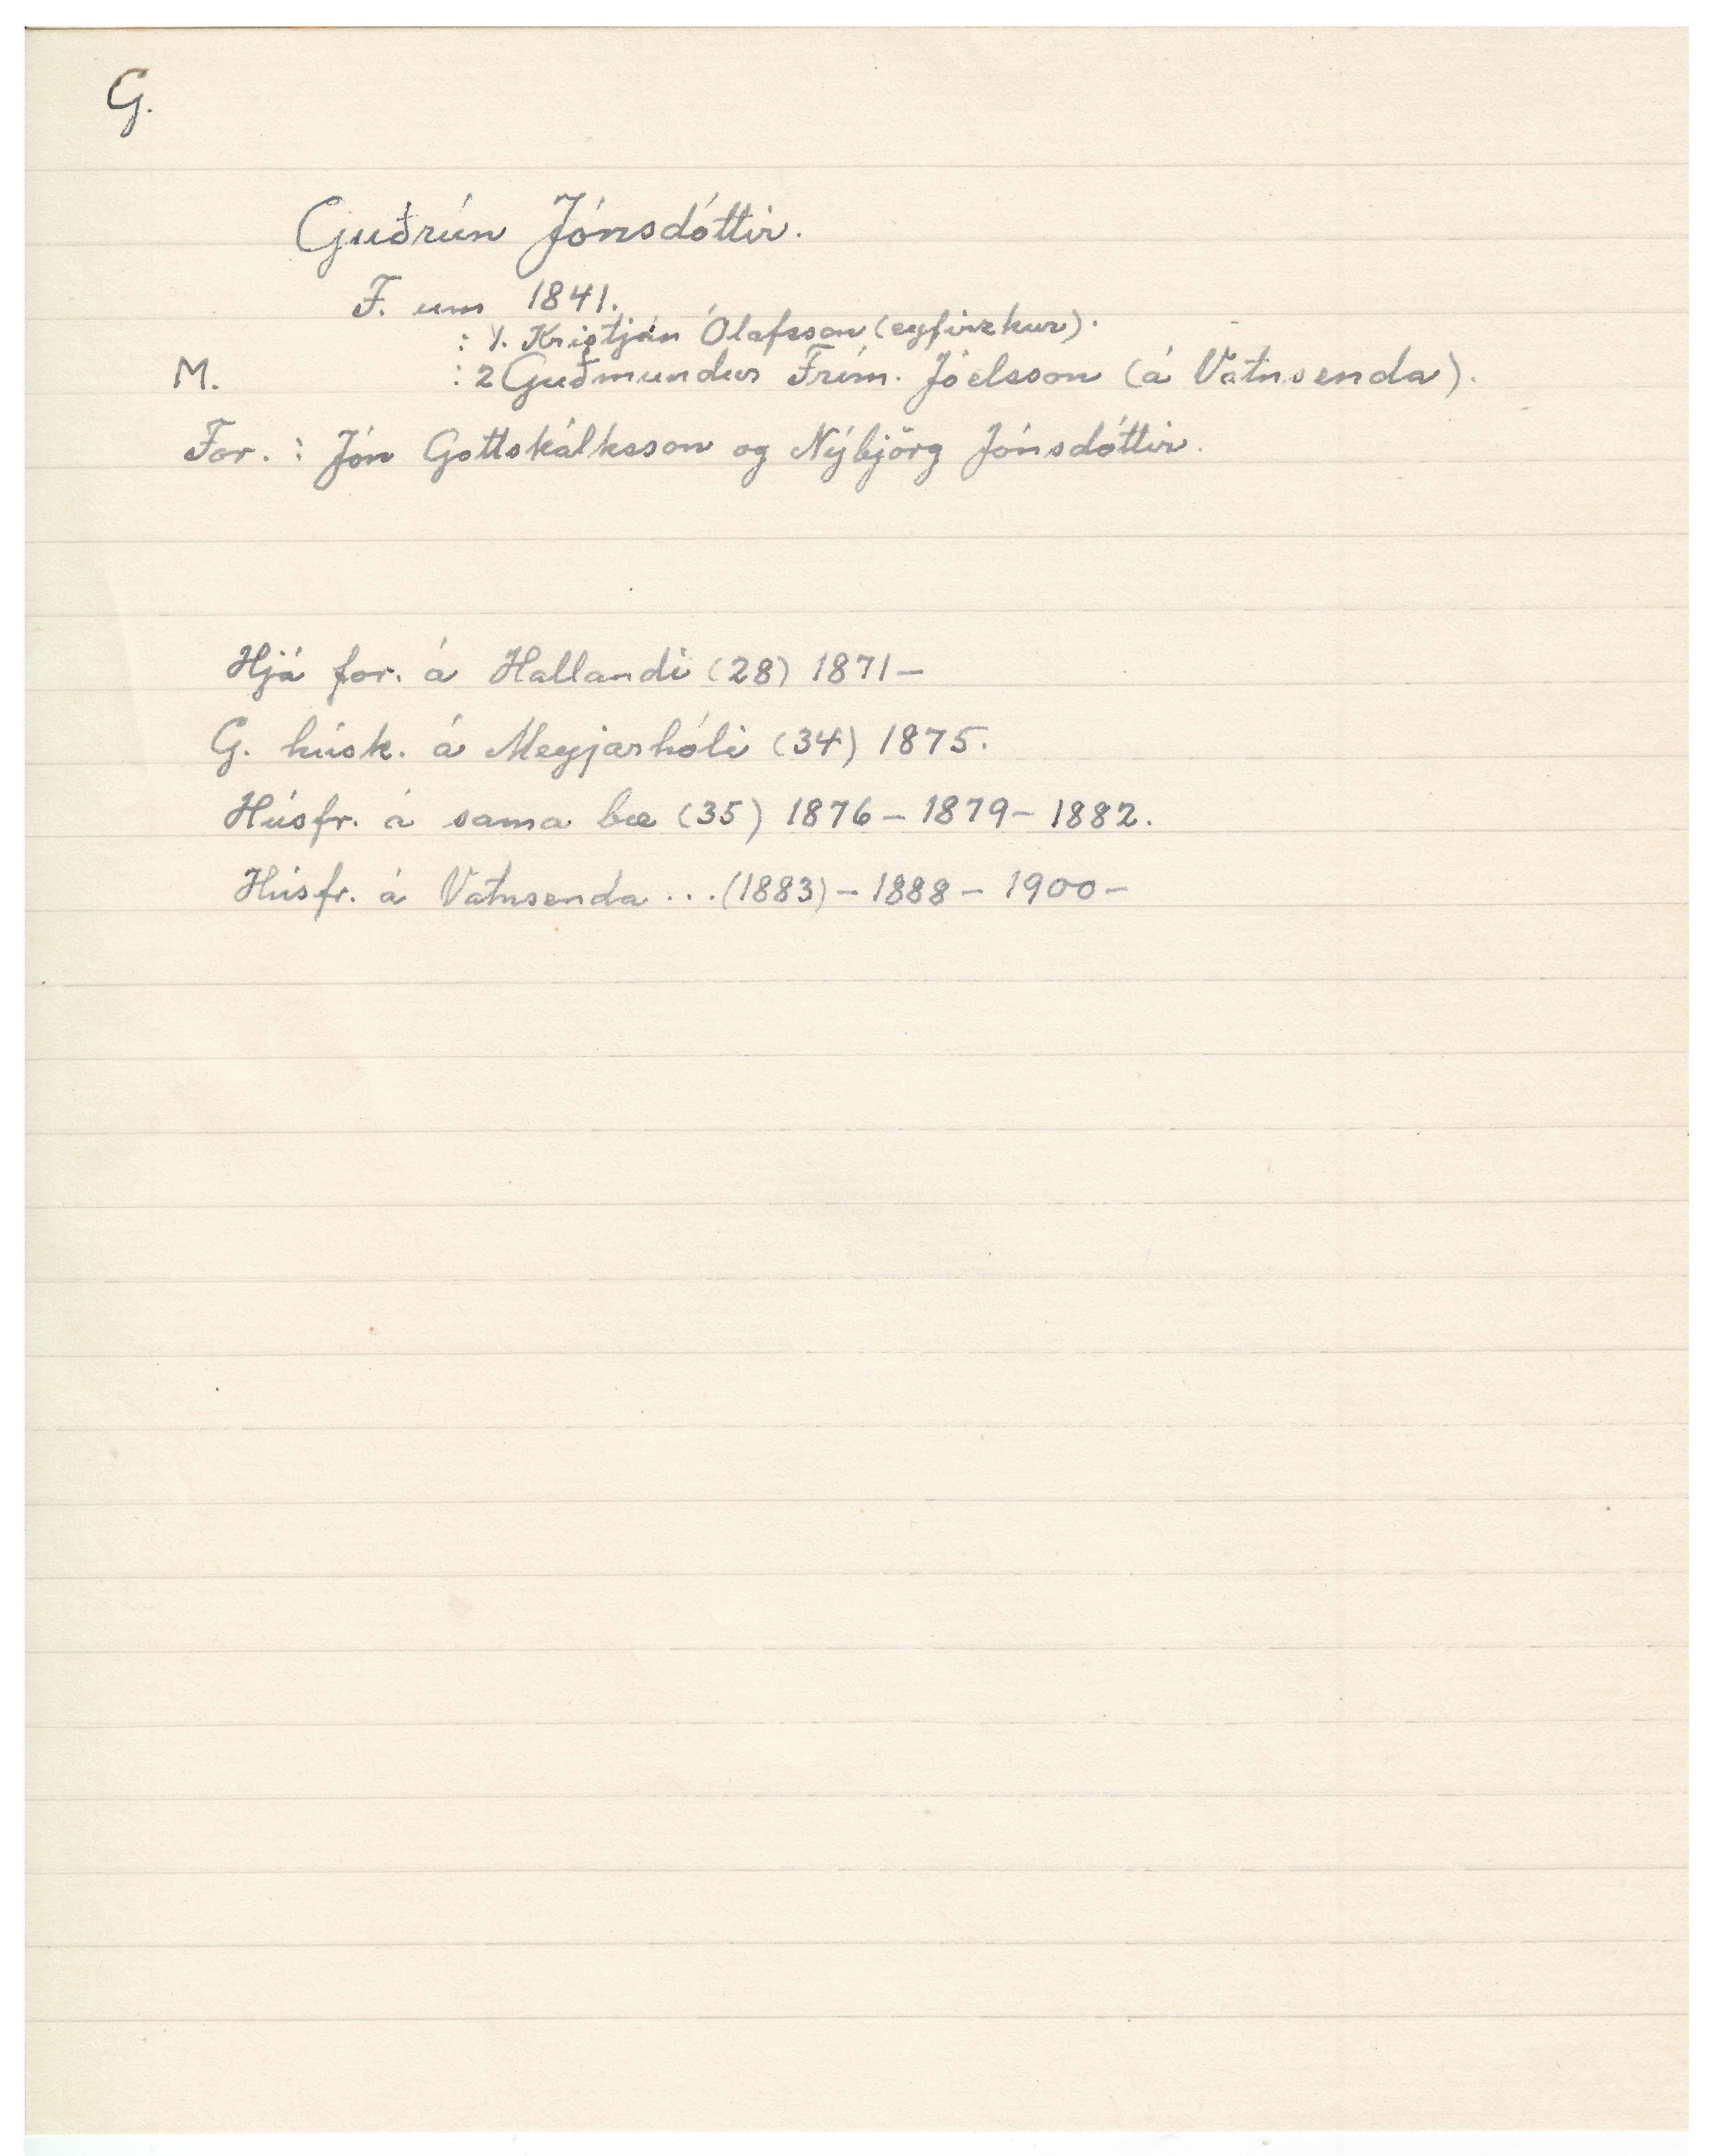 G.
Guðrún Jónsdóttir.
F. um 1841.
: 1. Kristján Ólafsson (eyfirzkur).
M. : 2 Guðmundur Frím. Jóelsson (á Vatnsenda).
For. : Jón Gottskálksson og Nýbjörg Jónsdóttir.
Hjá for. á Hallandi (28) 1871 –
G. húsk. á Meyjarhóli (34) 1875.
Húsfr. á sama bæ (35) 1876 – 1879 – 1882.
Húsfr. á Vatnsenda ... (1883) – 1888 – 1900 –